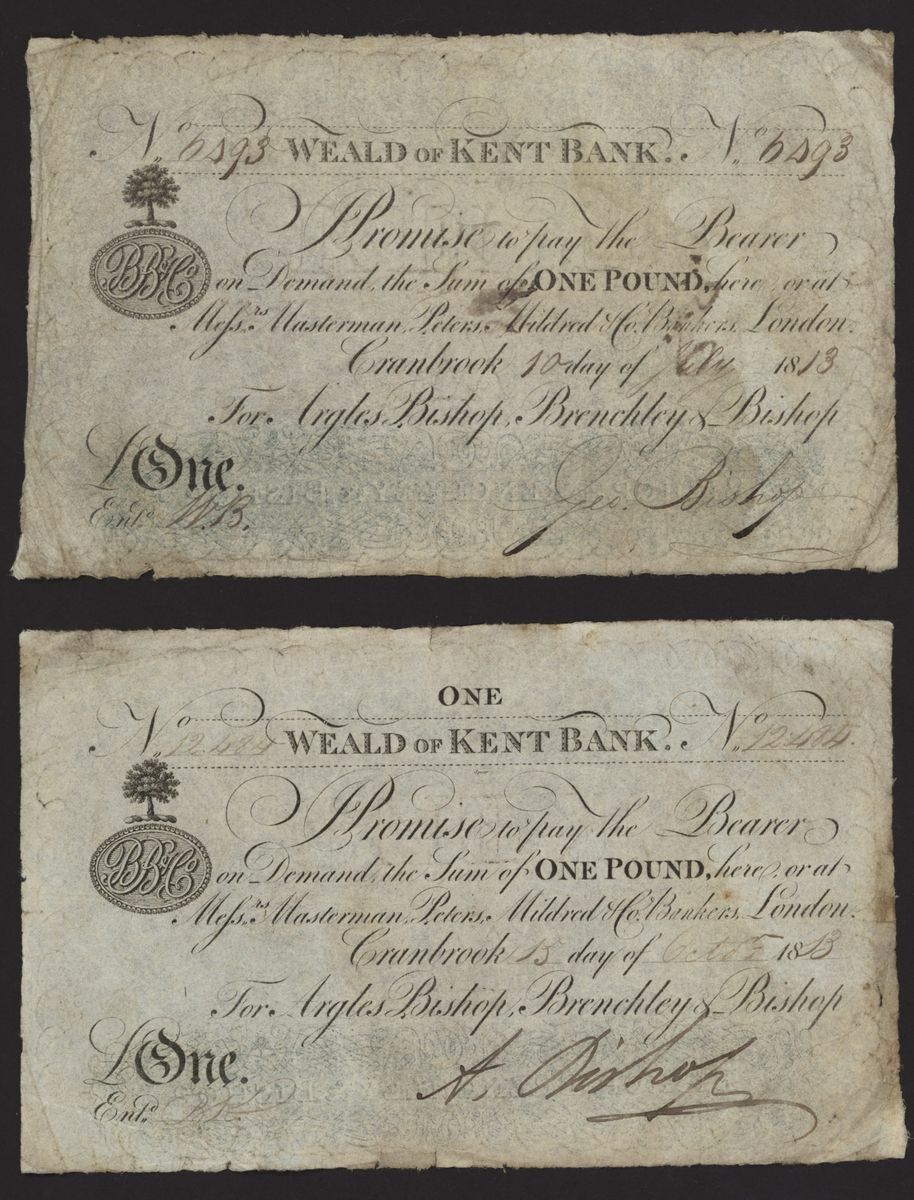 No. 6493 WEALD OF KENT BANK. No. 6493
I Promise to pay the Bearer
BB&Co
on Demand, the Sum of ONE POUND, here, or at
Mess.rs Masterman, Peters, Mildred & Co. Bankers, London.
Cranbrook 10 day of July 1813
For Argles Bishop, Brenchley & Bishop
£One.
Geo. Bishop
Ent.d W.B.
ONE
No. 12484 WEALD OF KENT BANK. No. 12484
I Promise to pay the Bearer
BB&Co
on Demand, the Sum of ONE POUND, here, or at
Mess.rs Masterman, Peters, Mildred & Co. Bankers, London.
Cranbrook 15 day of Octor 1813
For Argles Bishop, Brenchley & Bishop
£One.
A. Bishop
Ent.d